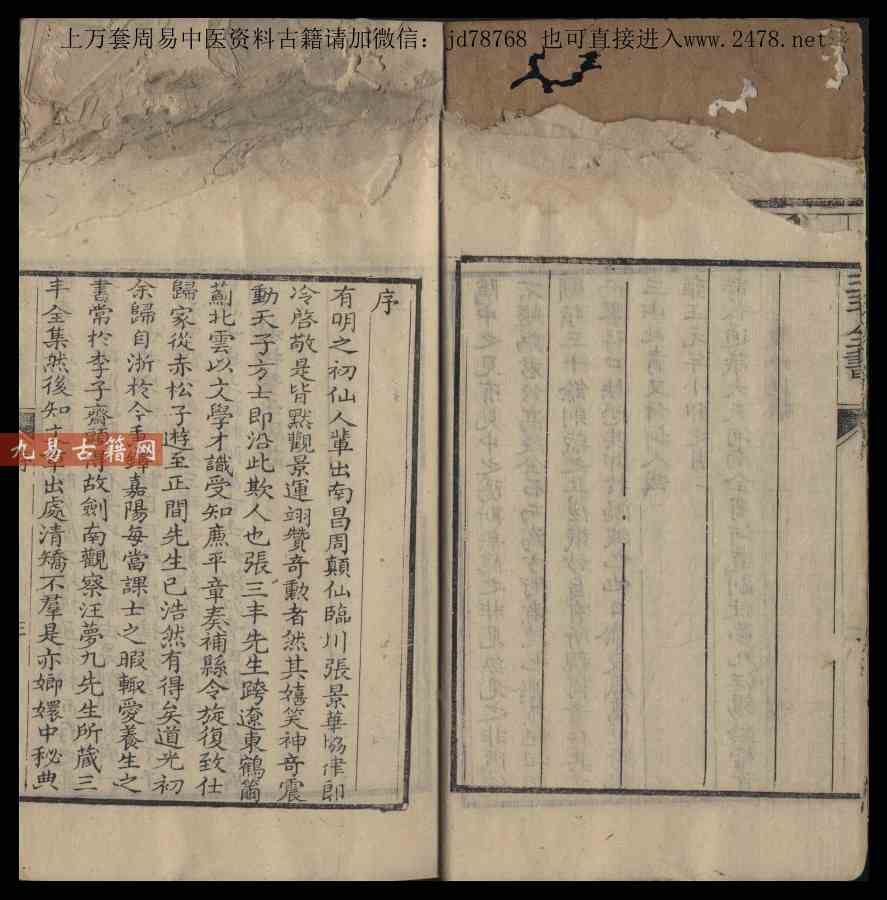 上万套周易中医资料古籍请加微信：jd78768 也可直接进入www.2478.net
序
有明之初仙人輩出南昌周顛仙臨川張景華協律郎
冷啓敬是皆黙觀景運翊贊奇勳者然其嬉笑神奇震
動天子方士即沿此欺人也張三丰先生跨遼東鶴籋
薊北雲以文學才識受知廉平章奏補縣令旋復致仕
歸家從赤松子遊至正間先生已浩然有得矣道光初
余歸自浙於今嘉陽每當課士之暇輙愛養生之
書常於李子齋頭故劍南觀察汪夢九先生所藏三
丰全集然後知出處清矯不羣是亦嫏嬛中秘典
九易古籍网
三丰全書